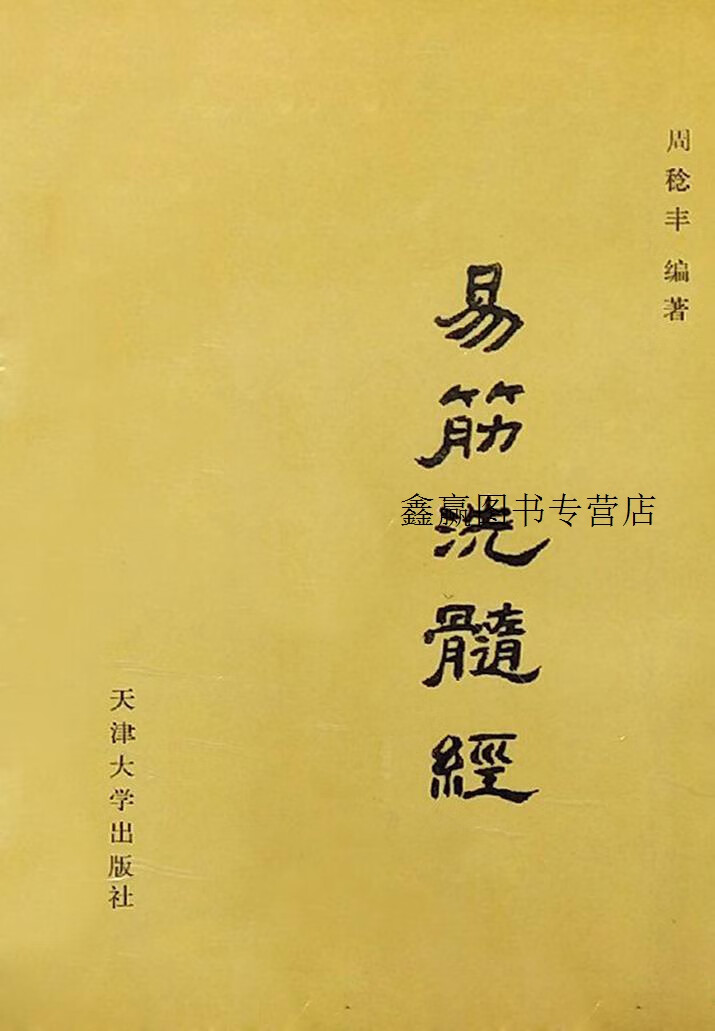 周稔丰 编著
易筋洗髓經
鑫赢图书专营店
天津大学出版社